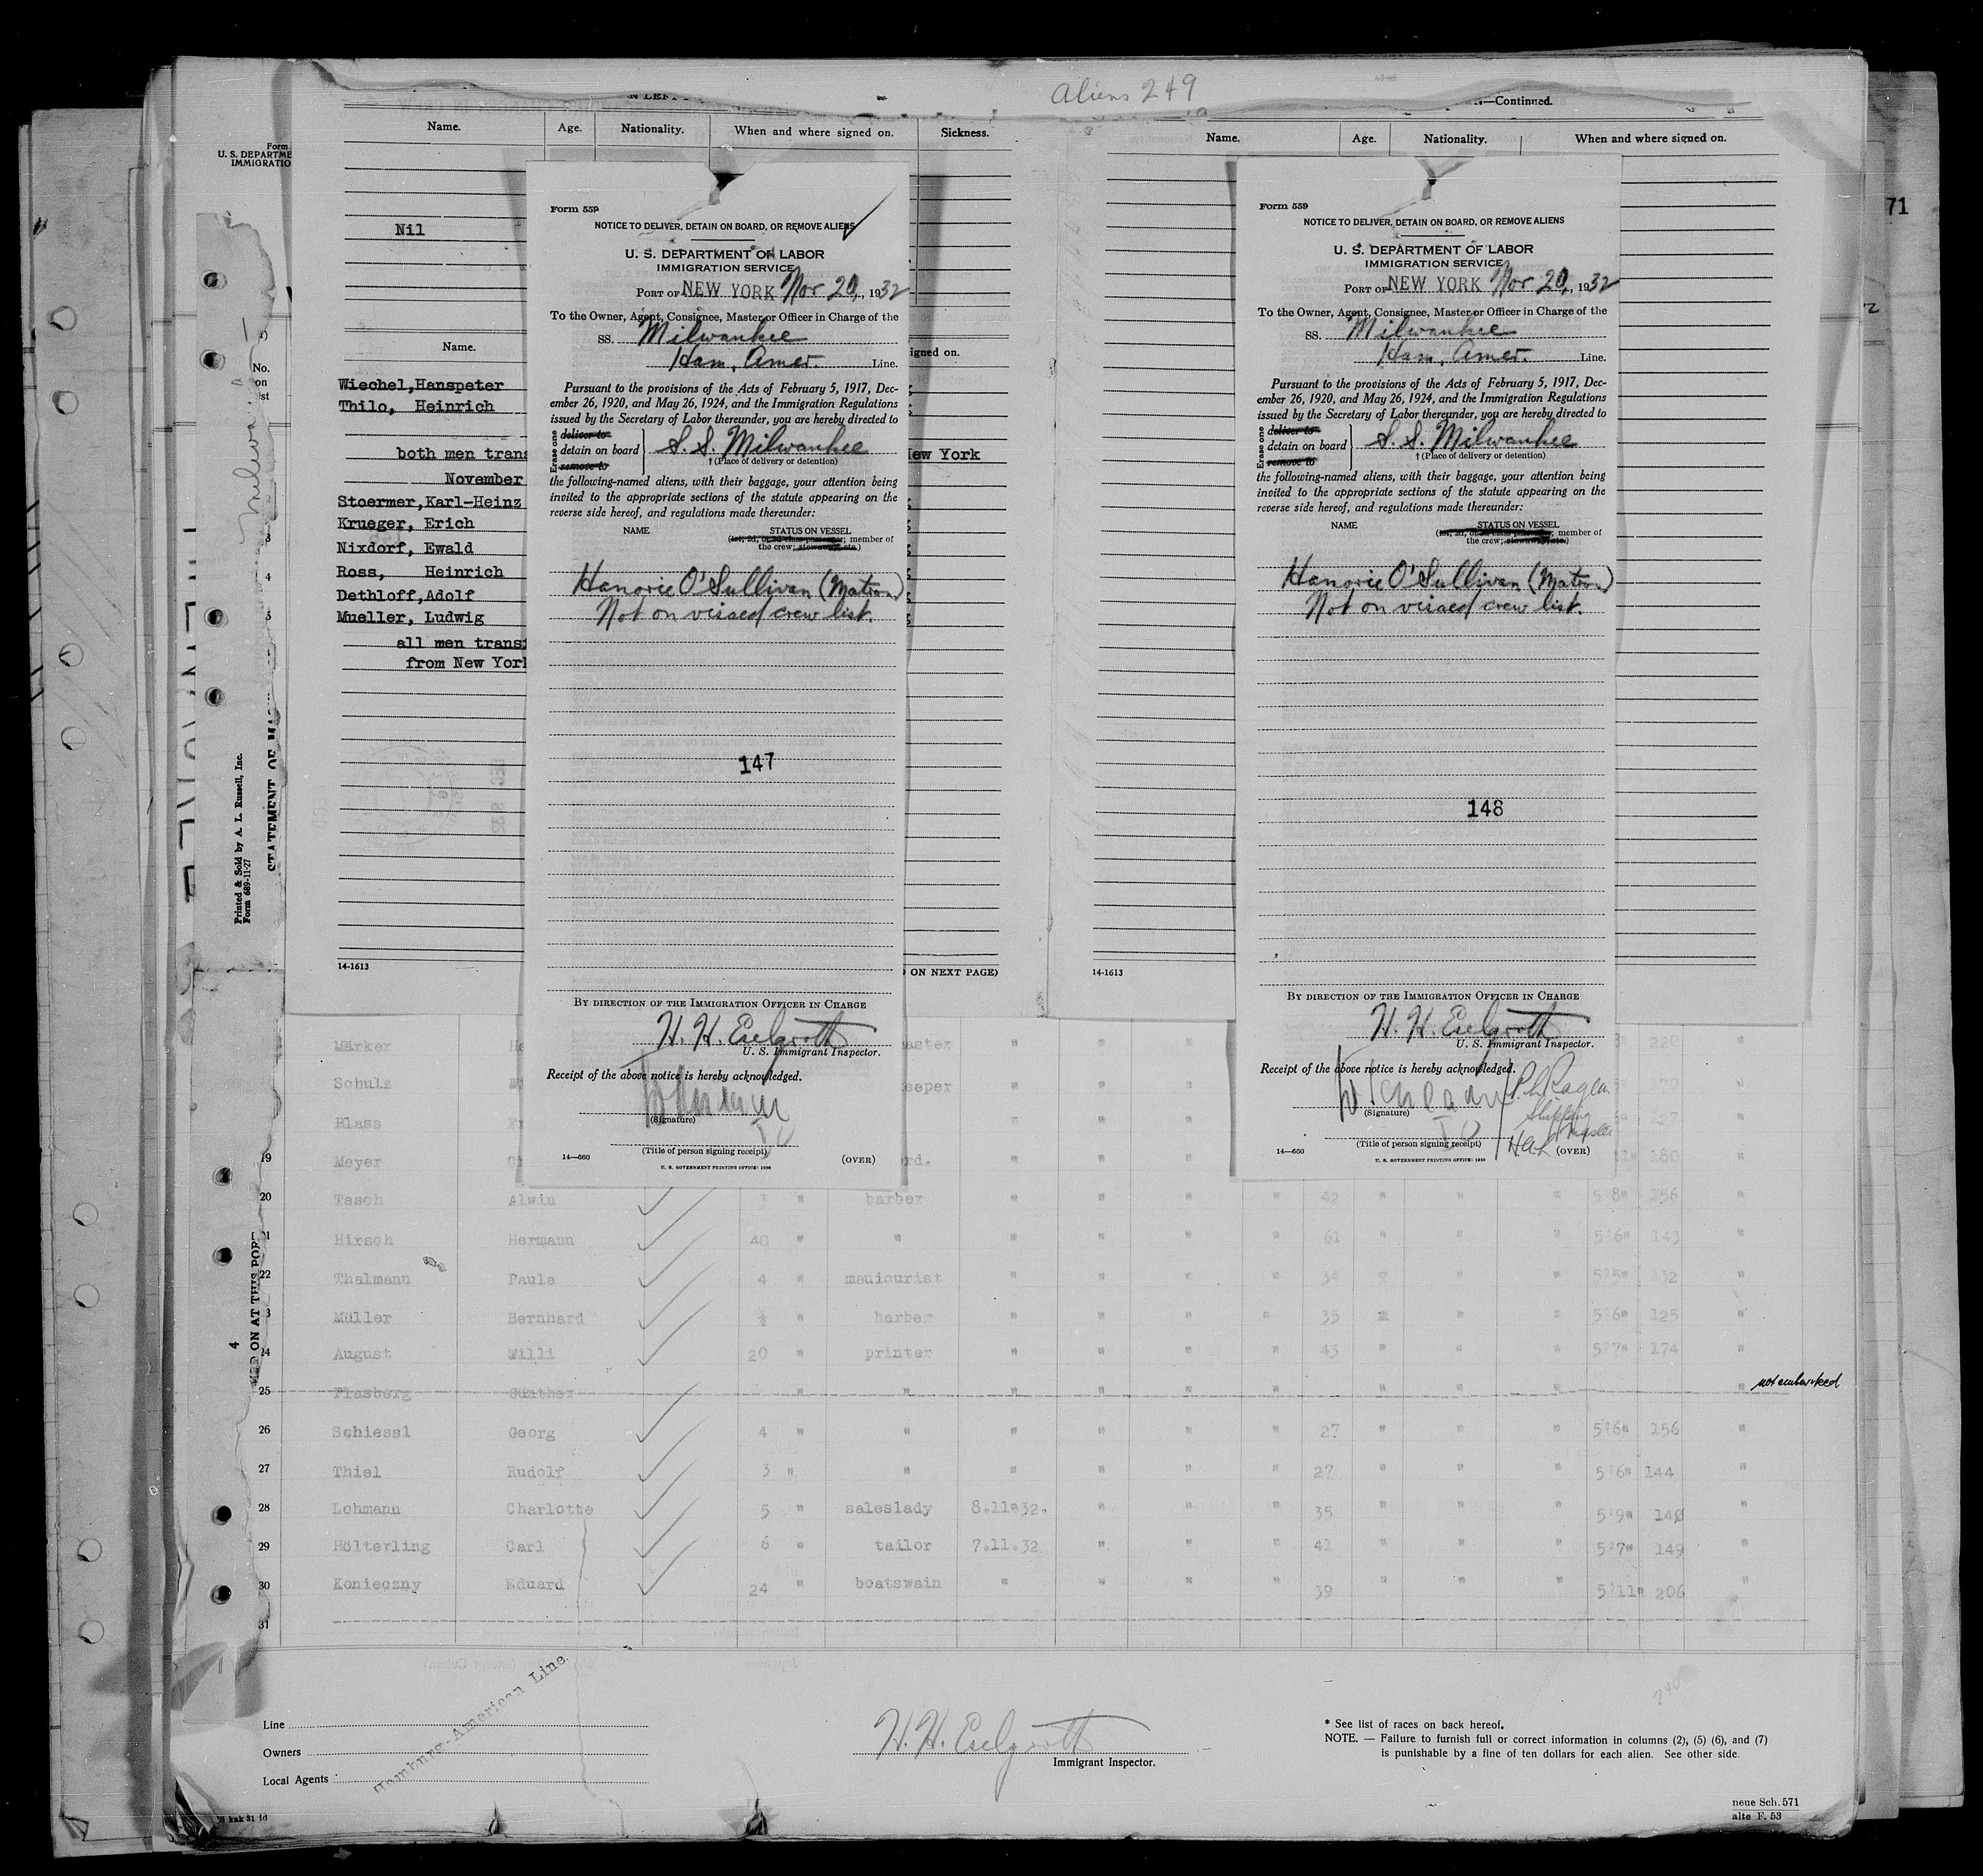 Aliens 249
—Continued.
Name. Age. Nationality. When and where signed on. Sickness.
Name. Age. Nationality. When and where signed on.
Form
U. S. DEPARTME
IMMIGRATIO
71
Nil
Name.
igned on.
No.
on
Wiechel,Hanspeter
Thilo, Heinrich
both men trans
New York
November
Stoermer,Karl-Heinz
Krueger, Erich
Nixdorf, Ewald
Ross, Heinrich
Dethloff,Adolf
Mueller, Ludwig
all men trans
from New York
Printed & Sold by A. L. Russell, Inc.
Form 689-11-27
STATEMENT OF MA
14-1613
ON NEXT PAGE)
14-1613
Form 559
NOTICE TO DELIVER, DETAIN ON BOARD, OR REMOVE ALIENS
U. S. DEPARTMENT OF LABOR
IMMIGRATION SERVICE
PORT OF NEW YORK Nov 20, 1932
To the Owner, Agent, Consignee, Master or Officer in Charge of the
SS. Milwaukee
Ham, Amer. Line.
Pursuant to the provisions of the Acts of February 5, 1917, Dec-
ember 26, 1920, and May 26, 1924, and the Immigration Regulations
issued by the Secretary of Labor thereunder, you are hereby directed to
Erase one
deliver to
detain on board S. S. Milwaukee
remove to
†(Place of delivery or detention)
the following-named aliens, with their baggage, your attention being
invited to the appropriate sections of the statute appearing on the
reverse side hereof, and regulations made thereunder:
NAME STATUS ON VESSEL
(1st, 2d, or 3d class passenger; member of
the crew; stowaway, etc.)
Hanorie O'Sullivan (Matron)
Not on visaed crew list.
147
BY DIRECTION OF THE IMMIGRATION OFFICER IN CHARGE
H. H. Eselgroth
U. S. Immigrant Inspector.
Receipt of the above notice is hereby acknowledged.
(Signature)
(Title of person signing receipt)
14—660
U. S. GOVERNMENT PRINTING OFFICE: 1930
(OVER)
Form 559
NOTICE TO DELIVER, DETAIN ON BOARD, OR REMOVE ALIENS
U. S. DEPARTMENT OF LABOR
IMMIGRATION SERVICE
PORT OF NEW YORK Nov 20, 1932
To the Owner, Agent, Consignee, Master or Officer in Charge of the
SS. Milwaukee
Ham, Amer. Line.
Pursuant to the provisions of the Acts of February 5, 1917, Dec-
ember 26, 1920, and May 26, 1924, and the Immigration Regulations
issued by the Secretary of Labor thereunder, you are hereby directed to
Erase one
deliver to
detain on board S. S. Milwaukee
remove to
†(Place of delivery or detention)
the following-named aliens, with their baggage, your attention being
invited to the appropriate sections of the statute appearing on the
reverse side hereof, and regulations made thereunder:
NAME STATUS ON VESSEL
(1st, 2d, or 3d class passenger; member of
the crew; stowaway, etc.)
Hanorie O'Sullivan (Matron)
Not on visaed crew list.
148
BY DIRECTION OF THE IMMIGRATION OFFICER IN CHARGE
H. H. Eselgroth
U. S. Immigrant Inspector.
Receipt of the above notice is hereby acknowledged.
Shipping
Master
(Signature)
(Title of person signing receipt)
14—660
U. S. GOVERNMENT PRINTING OFFICE: 1930
(OVER)
Märker 220
Schulz
Blass 127
19 Meyer 180
20 Tesch Alwin 3 " barber " " " " 42 " " " 5'8" 156
21 Hirsch Hermann 40 " " " " " " 61 " " " 5'6" 143 "
22 Thalmann Paula 4 " manicurist " " " " 34 " " " 5'5" 132 "
23 Müller Bernhard " barber " " " " 35 " " " 5'6" 125 "
24 August Willi 20 " printer " " " " 43 " " " 5'7" 174 "
25 Plasberg Günther " " " " " " " " " " " not embarked
26 Schiessl Georg 4 " " " " " " 27 " " " 5'6" 156 "
27 Thiel Rudolf 3 " " " " " " 27 " " " 5'6" 144 "
28 Lohmann Charlotte 5 " saleslady 8.11.32. " " " 35 " " " 5'9" 140 "
29 Hölterling Carl 6 " tailor 7.11.32 " " " 41 " " " 5'7" 149 "
30 Konieczny Eduard 24 " boatswain " " " " 39 " " " 5'11" 206 "
31
Line
Owners
Local Agents
Hamburg-American Line.
H. H. Eselgroth
Immigrant Inspector.
* See list of races on back hereof.
NOTE. — Failure to furnish full or correct information in columns (2), (5) (6), and (7)
is punishable by a fine of ten dollars for each alien. See other side.
neue Sch. 571
alte F. 53